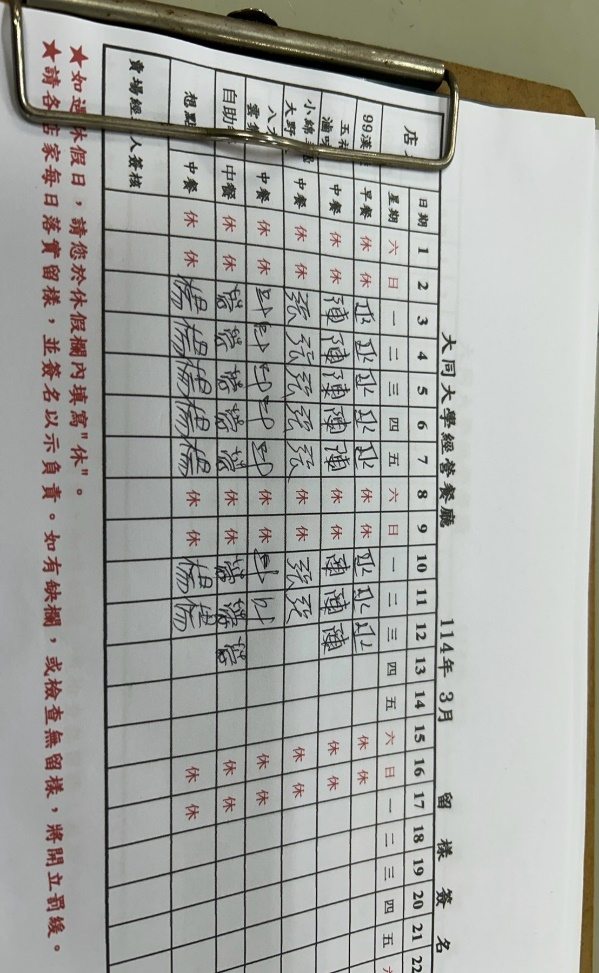 大同大學經營餐廳 114年 3月 留 樣 簽 名
店 日期 1 2 3 4 5 6 7 8 9 10 11 12 13 14 15 16 17 18 19 20 21 22
星期 六 日 一 二 三 四 五 六 日 一 二 三 四 五 六 日 一 二 三 四 五
99漢 早餐 休 休 休 休 休 休
五 中餐 休 休 陳 陳 陳 陳 陳 休 休 陳 陳 陳 休 休
滷
小綿 中餐 休 休 張 張 張 張 張 休 休 張 張 休 休
大野
八 中餐 休 休 休 休 休 休
雲
自助 中餐 休 休 休 休 休 休
想點 中餐 休 休 楊 楊 楊 楊 楊 休 休 楊 楊 休 休
賣場經 人簽核
★如遇休假日，請您於休假欄內填寫"休"。
★請各店家每日落實留樣，並簽名以示負責。如有缺欄，或檢查無留樣，將開立罰緩。